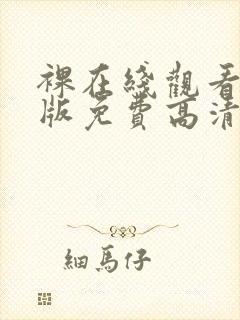 裸在綫觀看
版免費高清
細馬仔